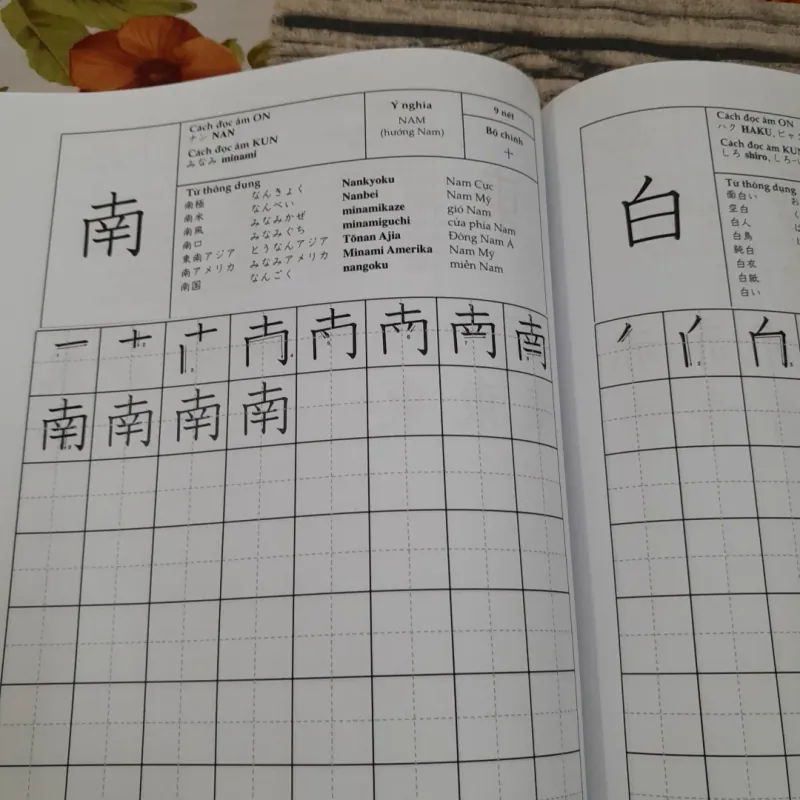 南
Cách đọc âm ON
ナン NAN
Cách đọc âm KUN
みなみ minami
Ý nghĩa
NAM
(hướng Nam)
9 nét
Bộ chính
十
Từ thông dụng
南極 なんきょく Nankyoku Nam Cực
南米 なんべい Nanbei Nam Mỹ
南風 みなみかぜ minamikaze gió Nam
南口 みなみぐち minamiguchi cửa phía Nam
東南アジア とうなんアジア Tōnan Ajia Đông Nam Á
南アメリカ みなみアメリカ Minami Amerika Nam Mỹ
南国 なんごく nangoku miền Nam
南 南 南 南 南
白
Cách đọc âm ON
ハク HAKU, ヒャ
Cách đọc âm KUN
しろ shiro, しろ
Từ thông dụng
面白い お
空白
白人
白鳥
純白
白衣
白紙
白い